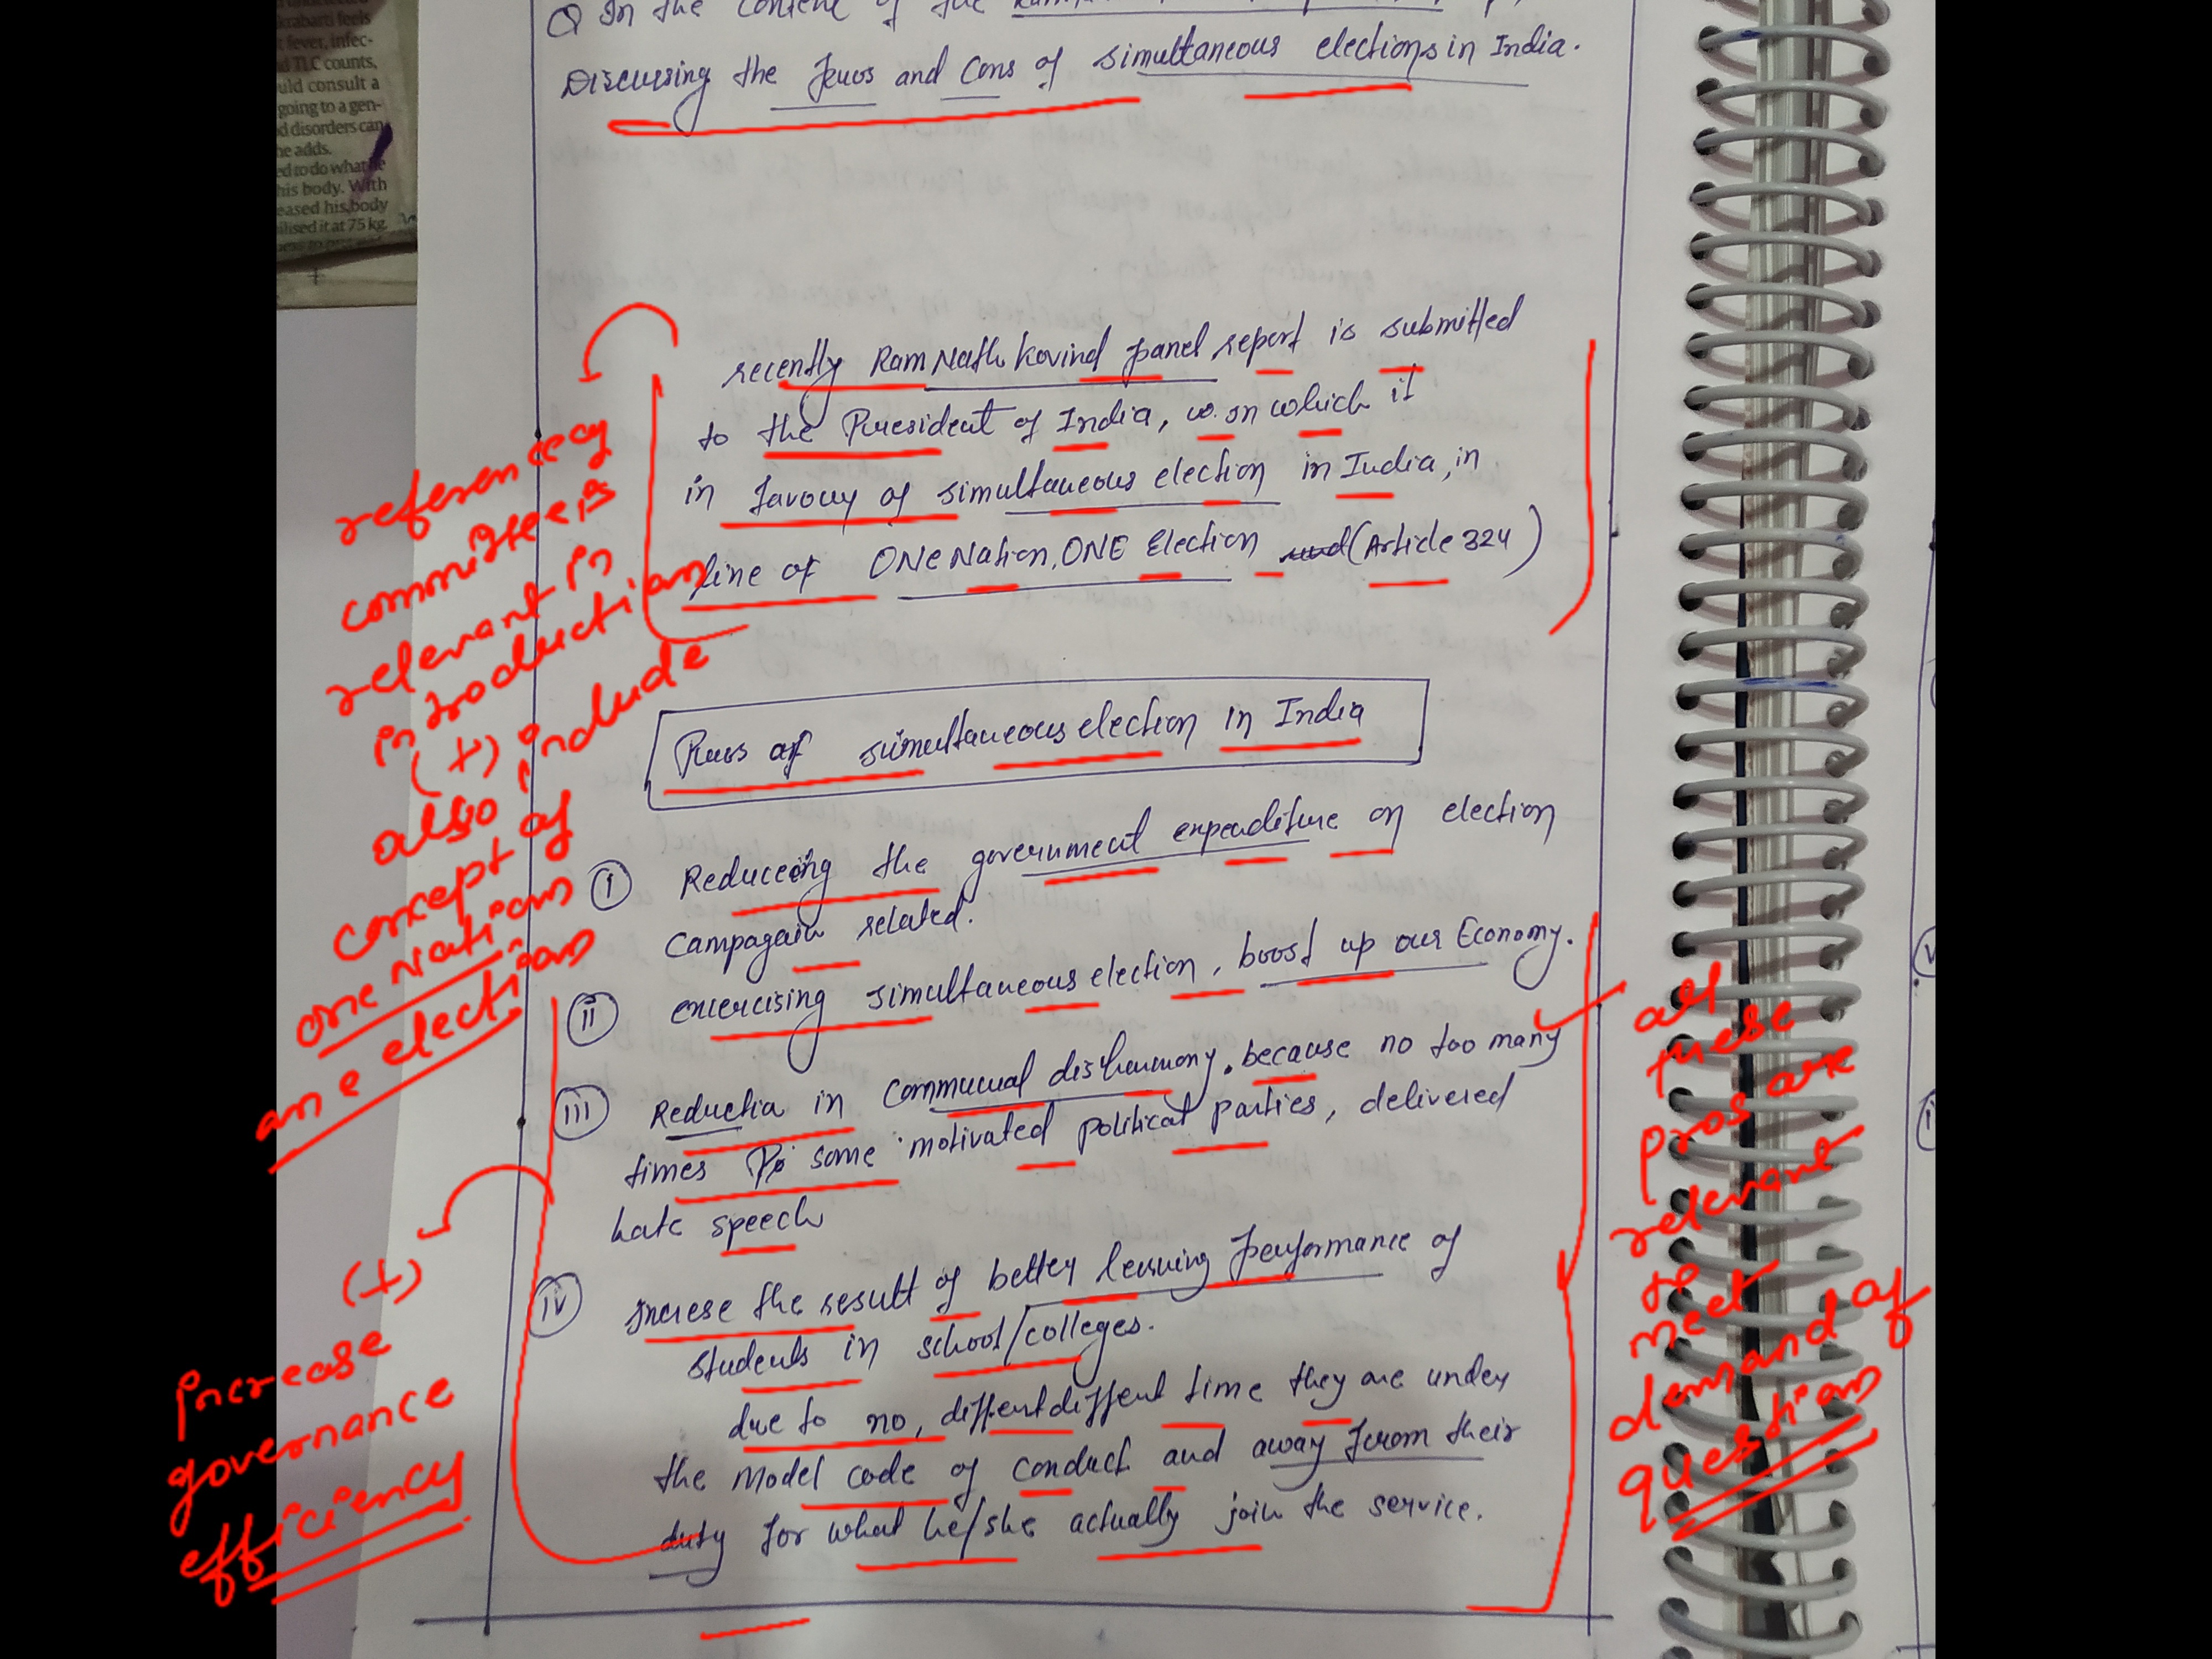 krabarti feels
t fever, infec-
d TLC counts,
uld consult a
going to a gen-
d disorders can
he adds.
ed to do what he
his body. With
eased his body
ilised it at 75 kg.
Q In the context of the
Discussing the Pros and Cons of simultaneous elections in India.
recently Ram Nath Kovind panel report is submitted
to the President of India, in which it
in favour of simultaneous election in India, in
line of ONe Nation, ONE Election (Article 324)
Pros of simultaneous election in India
(i) Reduceing the government expenditure on election
campagain related.
(ii) exercising simultaneous election, boost up our Economy.
(iii) Reductia in communal disharmony. because no too many
times some motivated political parties, delivered
hate speech
(iv) Increse the result of better learning performance of
students in school/colleges.
due to no, diffent diffent time they are under
the Model code of conduct and away from their
duty for what he/she actually join the service.
referencey
committee is
relevant in
introduction
(+)
also include
concept of
one nation
one election
(+)
increase
governance
efficiency
all
these
pros are
relevant
to
meet
demand of
question